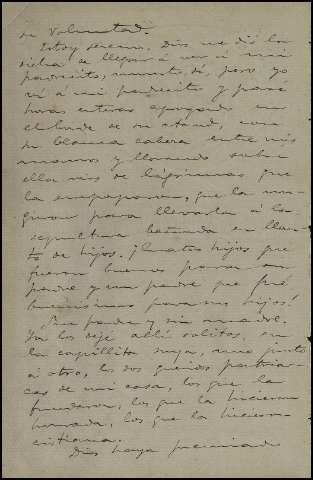 su voluntad.
Estoy sereno. Dios me dió la
dicha de llegar á ver á mi
padrecito, muerto, sí, pero yo
vi á mi padrecito y pasé
horas enteras apoyado en
el borde de su ataud, con
su blanca cabeza entre mis
manos y llorando sobre
ella ríos de lágrimas que
la empaparon, que la un-
gieron para llevarla á la
sepultura bañada en llan-
to de hijos. ¡Cuatro hijos que
fueron buenos para su
padre y un padre que fué
buenísimo para sus hijos!
Sin padre y sin madre.
Ya los dejé allí solitos, en
la capillita suya, uno junto
á otro, los dos queridos patriar-
cas de mi casa, los que la
fundaron, los que la hicieron
honrada, los que la hicieron
cristiana.
Dios haya premiado